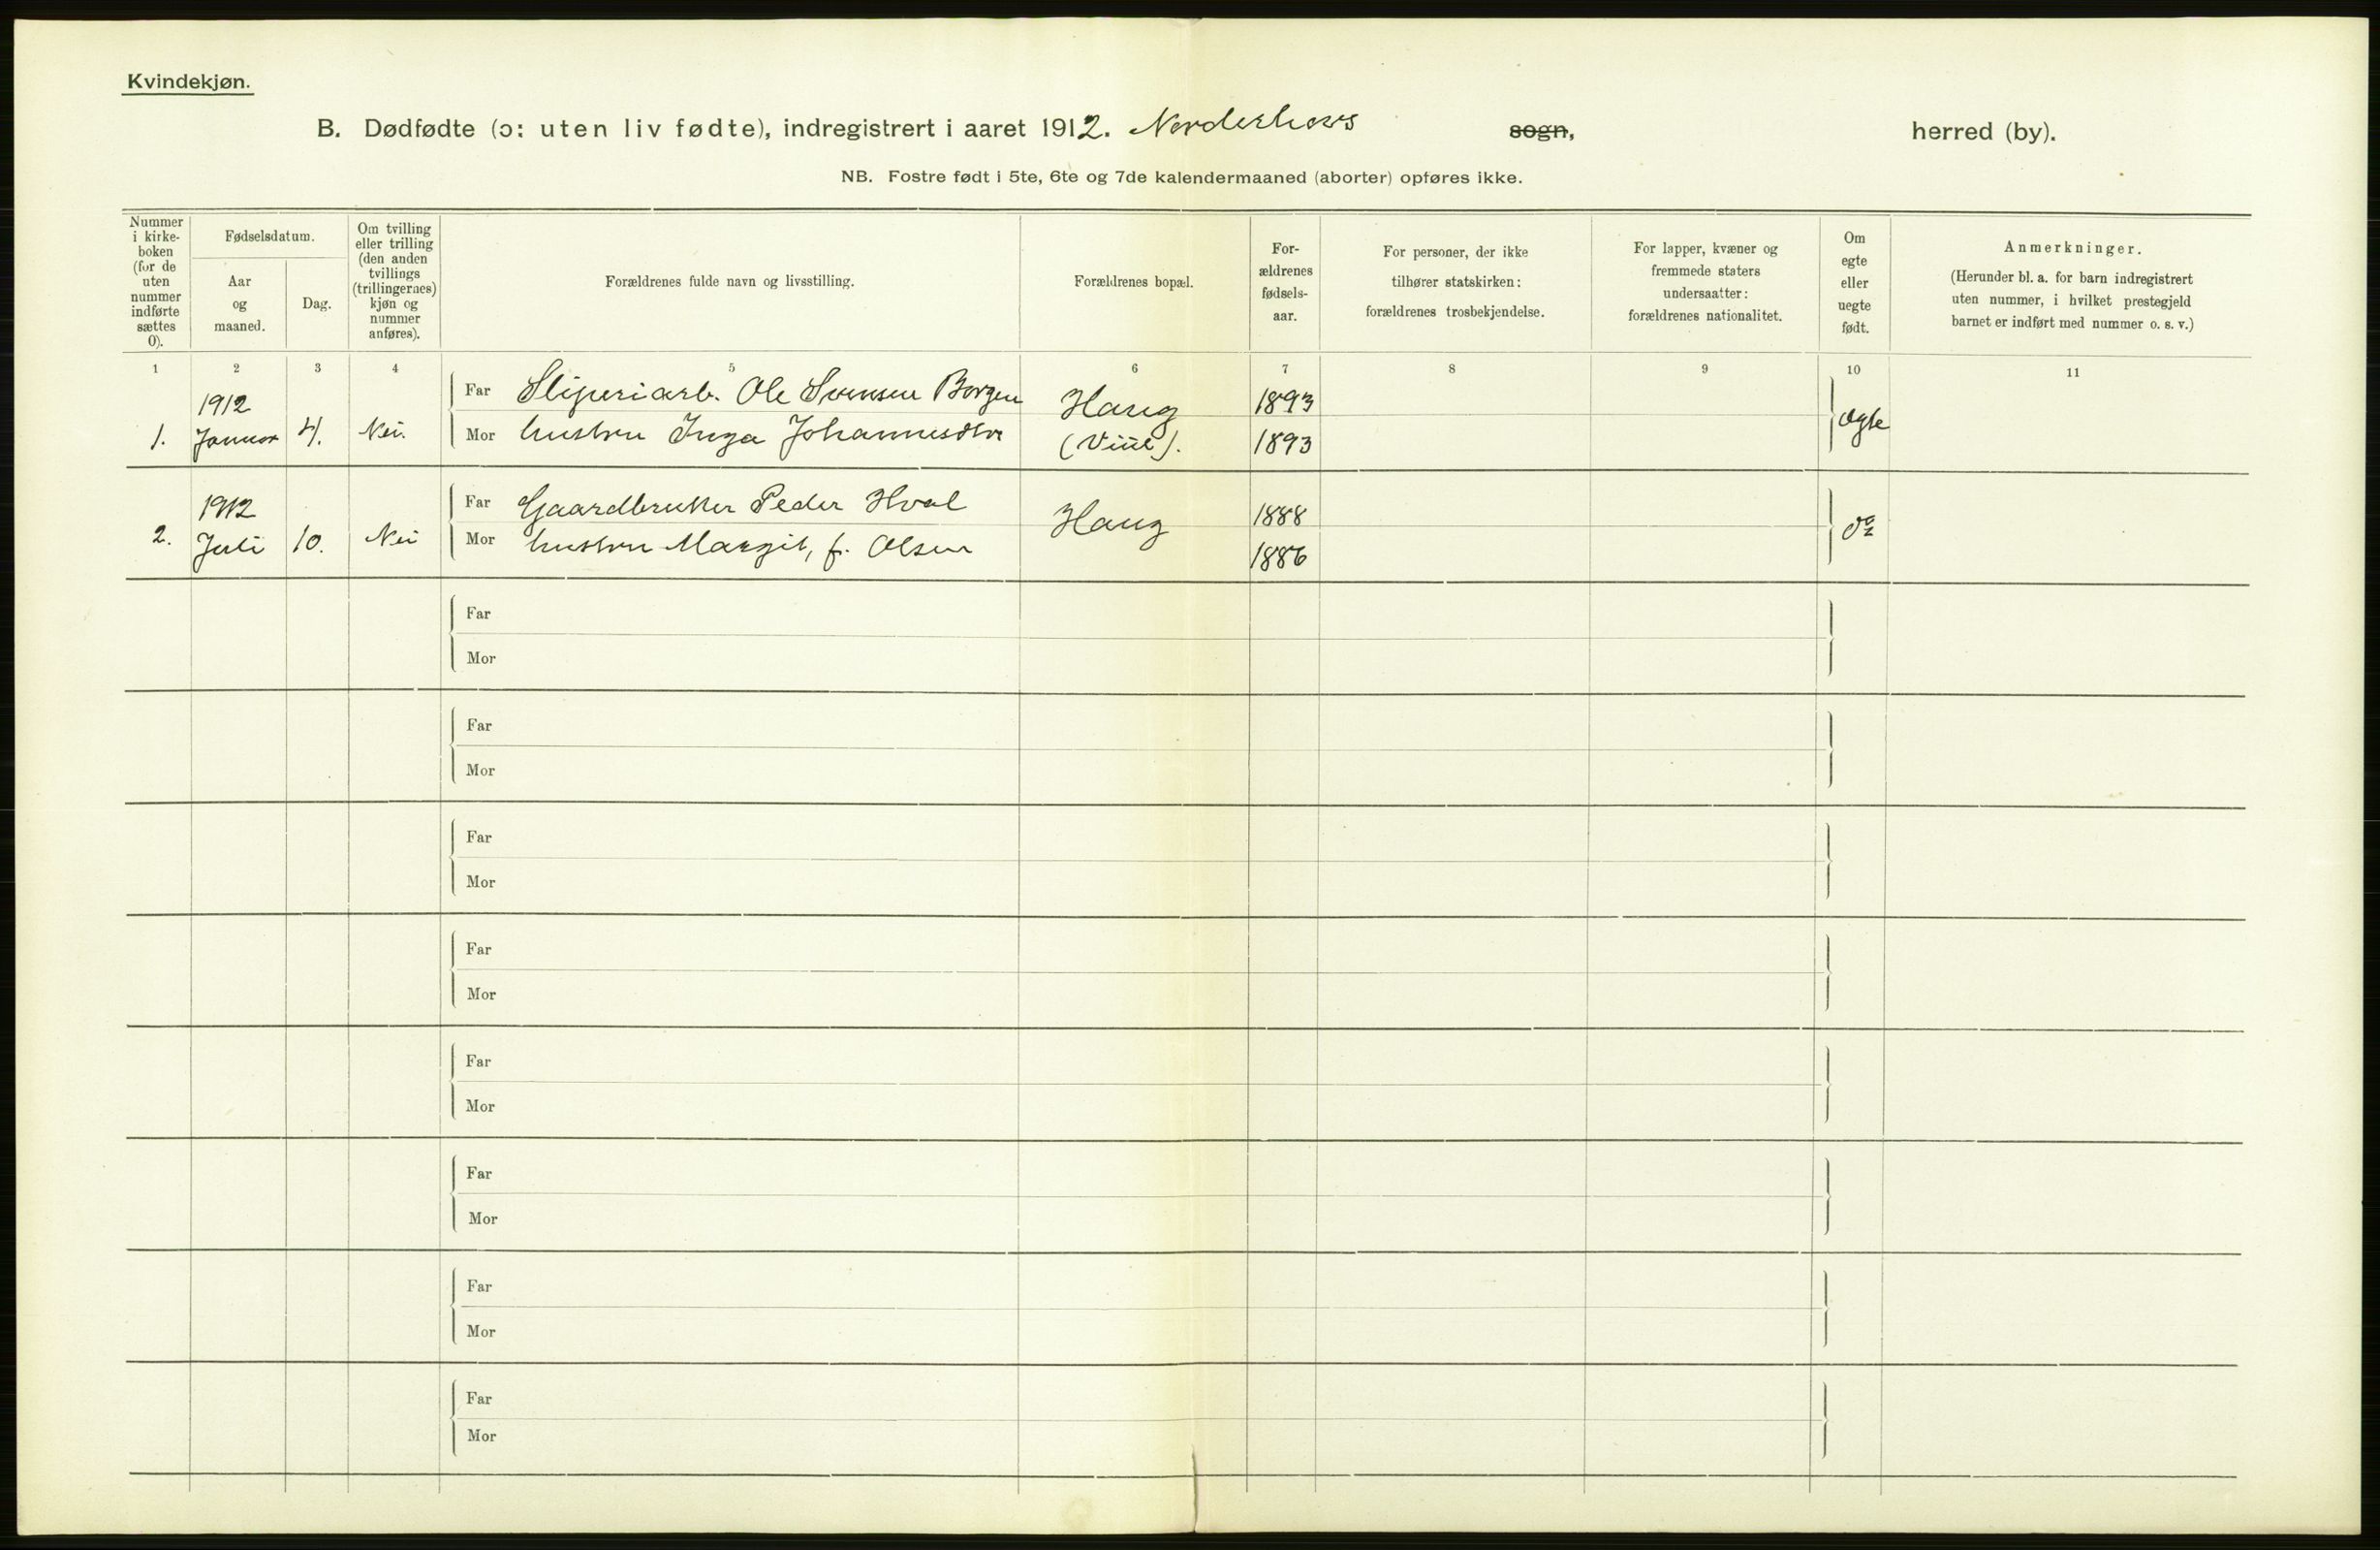 Kvindekjøn.
B. Dødfødte (ɔ: uten liv fødte), indregistrert i aaret 1912. Norderhovs sogn, herred (by).
NB. Fostre født i 5te, 6te og 7de kalendermaaned (aborter) opføres ikke.
Nummer i kirke-boken (for de uten nummer indførte sættes 0).
Fødselsdatum.
Aar og maaned.
Dag.
Om tvilling eller trilling (den anden tvillings (trillingernes) kjøn og nummer anføres).
Forældrenes fulde navn og livsstilling.
Forældrenes bopæl.
For-ældrenes fødsels-aar.
For personer, der ikke tilhører statskirken: forældrenes trosbekjendelse.
For lapper, kvæner og fremmede staters undersaatter: forældrenes nationalitet.
Om egte eller uegte født.
Anmerkninger.
(Herunder bl. a. for barn indregistrert uten nummer, i hvilket prestegjeld barnet er indført med nummer o. s. v.)
1 2 3 4 5 6 7 8 9 10 11
1. 1912 Januar 4. Nei.
Far Sliperiarb. Ole Svensen Borgen Haug 1893 Ægte
Mor hustru Inga Johannesdtr (Viul). 1893
2. 1912 Juli 10. Nei
Far Gaardbruker Peder Hval Haug 1888 do
Mor hustru Margit, f. Olsen 1886
Far
Mor
Far
Mor
Far
Mor
Far
Mor
Far
Mor
Far
Mor
Far
Mor
Far
Mor